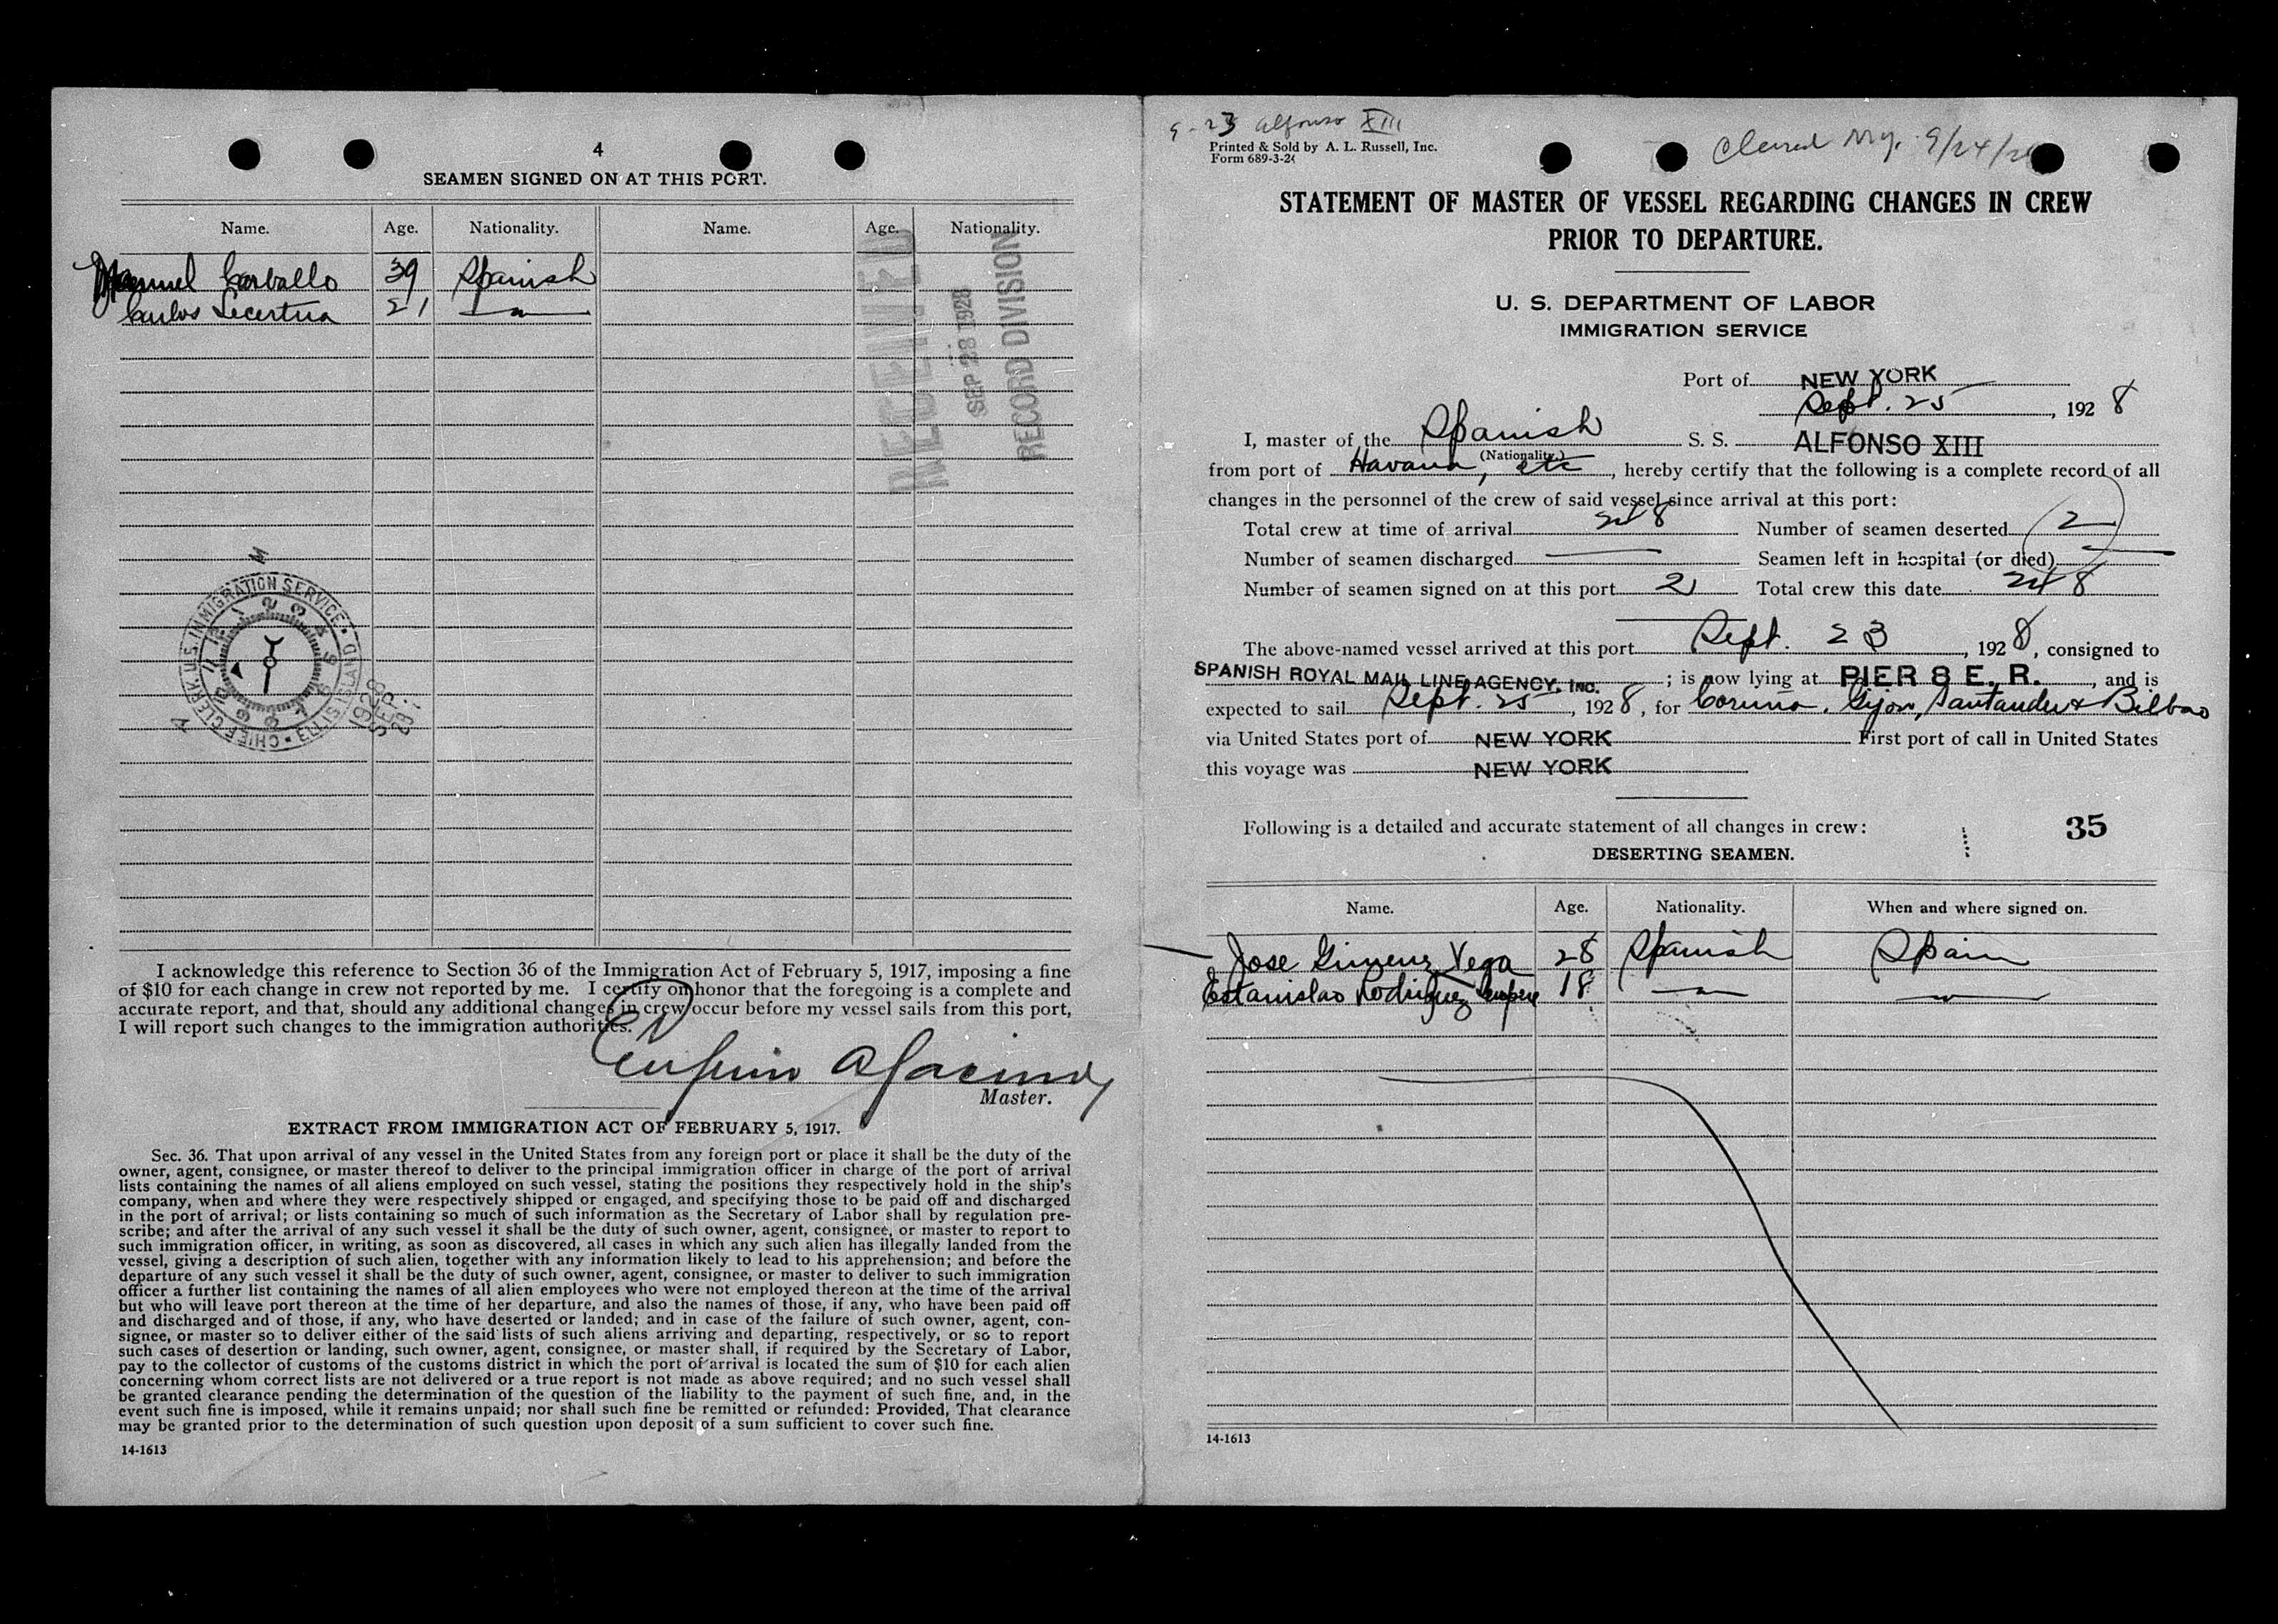 4
SEAMEN SIGNED ON AT THIS PORT.
Name. Age. Nationality. Name. Age. Nationality.
Manuel Carballo 39 Spanish
Carlos 21 "
RECEIVED
SEP 28 1928
RECORD DIVISION
CHIEF CLERK. U.S. IMMIGRATION SERVICE. ELLIS ISLAND
1928
SEP
I acknowledge this reference to Section 36 of the Immigration Act of February 5, 1917, imposing a fine
of $10 for each change in crew not reported by me. I certify on honor that the foregoing is a complete and
accurate report, and that, should any additional changes in crew occur before my vessel sails from this port,
I will report such changes to the immigration authorities.
Master.
EXTRACT FROM IMMIGRATION ACT OF FEBRUARY 5, 1917.
Sec. 36. That upon arrival of any vessel in the United States from any foreign port or place it shall be the duty of the
owner, agent, consignee, or master thereof to deliver to the principal immigration officer in charge of the port of arrival
lists containing the names of all aliens employed on such vessel, stating the positions they respectively hold in the ship's
company, when and where they were respectively shipped or engaged, and specifying those to be paid off and discharged
in the port of arrival; or lists containing so much of such information as the Secretary of Labor shall by regulation pre-
scribe; and after the arrival of any such vessel it shall be the duty of such owner, agent, consignee, or master to report to
such immigration officer, in writing, as soon as discovered, all cases in which any such alien has illegally landed from the
vessel, giving a description of such alien, together with any information likely to lead to his apprehension; and before the
departure of any such vessel it shall be the duty of such owner, agent, consignee, or master to deliver to such immigration
officer a further list containing the names of all alien employees who were not employed thereon at the time of the arrival
but who will leave port thereon at the time of her departure, and also the names of those, if any, who have been paid off
and discharged and of those, if any, who have deserted or landed; and in case of the failure of such owner, agent, con-
signee, or master so to deliver either of the said lists of such aliens arriving and departing, respectively, or so to report
such cases of desertion or landing, such owner, agent, consignee, or master shall, if required by the Secretary of Labor,
pay to the collector of customs of the customs district in which the port of arrival is located the sum of $10 for each alien
concerning whom correct lists are not delivered or a true report is not made as above required; and no such vessel shall
be granted clearance pending the determination of the question of the liability to the payment of such fine, and, in the
event such fine is imposed, while it remains unpaid; nor shall such fine be remitted or refunded: Provided, That clearance
may be granted prior to the determination of such question upon deposit of a sum sufficient to cover such fine.
14-1613
9-23 Alfonso XIII
Printed & Sold by A. L. Russell, Inc.
Form 689-3-2
Cleared 9/24/28
STATEMENT OF MASTER OF VESSEL REGARDING CHANGES IN CREW
PRIOR TO DEPARTURE.
U. S. DEPARTMENT OF LABOR
IMMIGRATION SERVICE
Port of NEW YORK
Sept. 25, 1928
I, master of the Spanish S. S. ALFONSO XIII
(Nationality.)
from port of Havana, etc, hereby certify that the following is a complete record of all
changes in the personnel of the crew of said vessel since arrival at this port:
Total crew at time of arrival 248 Number of seamen deserted 2
Number of seamen discharged — Seamen left in hospital (or died) —
Number of seamen signed on at this port 2 Total crew this date 248
The above-named vessel arrived at this port Sept. 23, 1928, consigned to
SPANISH ROYAL MAIL LINE AGENCY, INC.; is now lying at PIER 8 E. R., and is
expected to sail Sept. 25, 1928, for Coruna, Gijon, Santander & Bilbao
via United States port of NEW YORK First port of call in United States
this voyage was NEW YORK
Following is a detailed and accurate statement of all changes in crew: 35
DESERTING SEAMEN.
Name. Age. Nationality. When and where signed on.
Jose Gimenez Vega 28 Spanish Spain
Estanislao Rodriguez 18 " "
14-1613